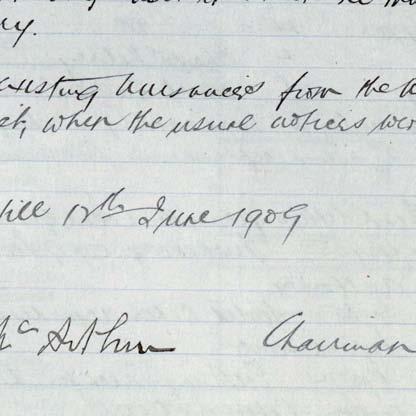 existing nuisances from the
when the usual notices
till 12th June 1909
McArthur Chairman